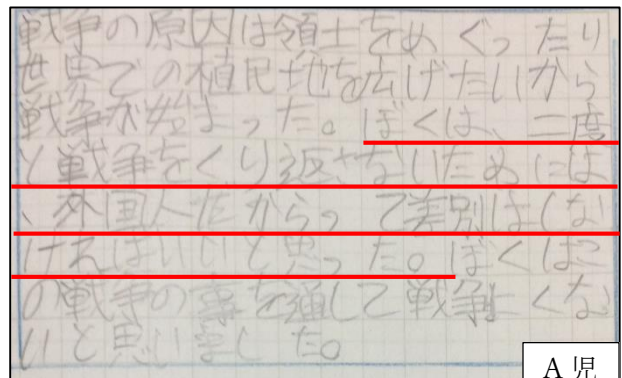 戦争の原因は領土をめぐったり
世界での植民地を広げたいから
戦争が始まった。ぼくは、二度
と戦争をくり返さないためには
、外国人だからって差別はしな
ければいいと思った。ぼくはこ
の戦争の事を通して戦争はよくな
いと思いました。
A児